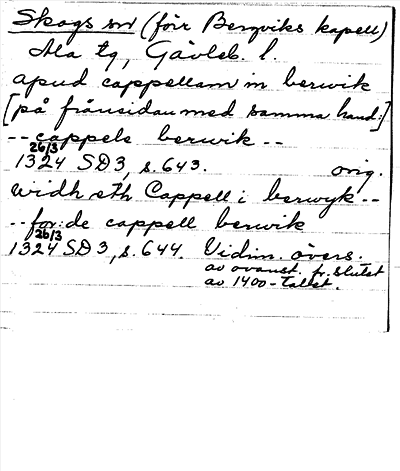 Skogs sn (förr Bergviks kapell)
Ala tg, Gävleb. l.
apud cappellam in berwik
[på frånsidan med samma hand:]
-- cappels berwik --
26/3
1324 SD3, s. 643. orig.
widh eth Cappell i berwyk --
-- for:de cappell berwik
26/3
1324 SD3, s. 644. Vidim. övers.
av ovanst. fr. slutet
av 1400-talet.